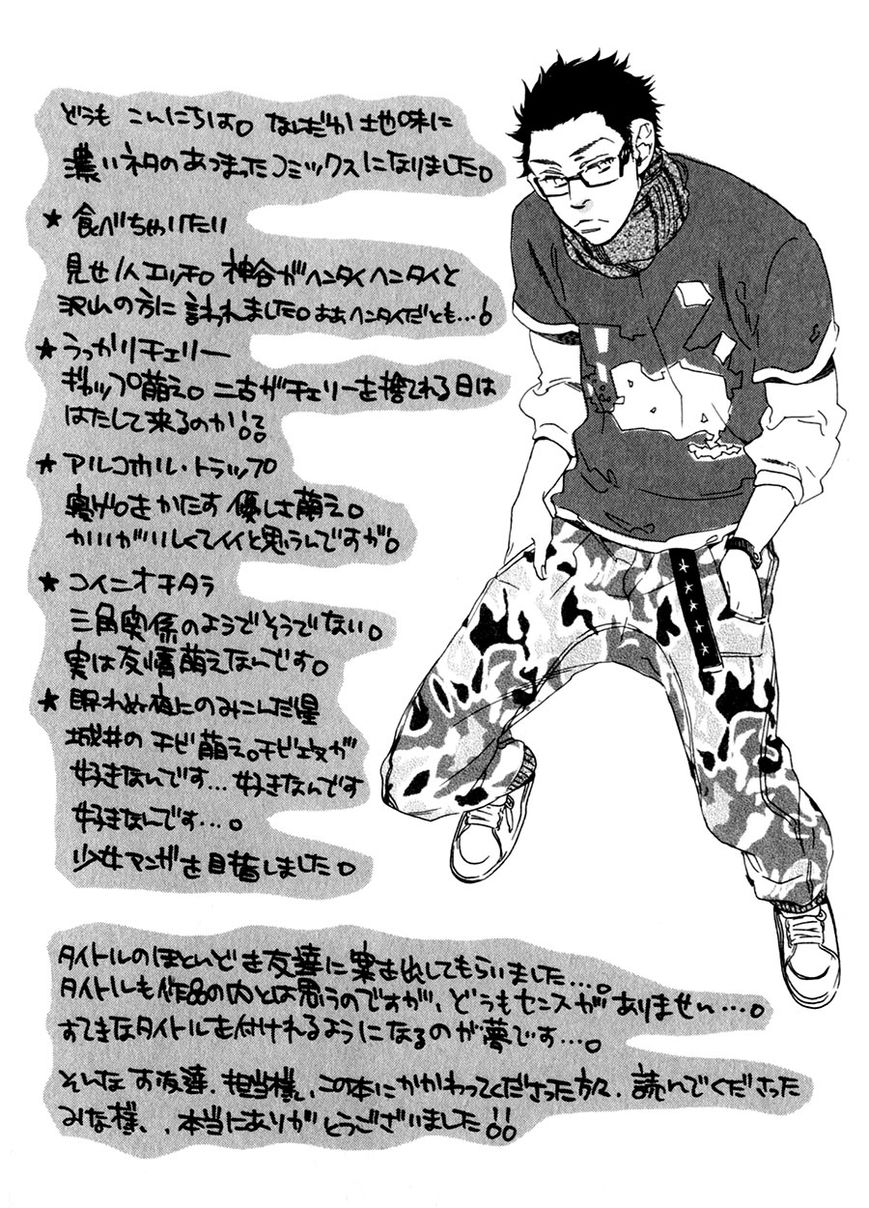 どうも こんにちは。なんだか地味に
濃いネタのあつまったコミックスになりました。
★ 食べちゃいたい
見せ1人エッチ。神谷がヘンタイヘンタイと
沢山の方に言われました。おおヘンタイだとも…!
★ うっかりチェリー
ギャップ萌え。二古がチェリーを捨てれる日は
はたして来るのか!?
★ アルコホル・トラップ
ゲロをかたす優しさ萌え。
かいがいしくてイイと思うんですが。
★ コイニオチタラ
三角関係のようでそうでない。
実は友情萌えなんです。
★ 眠れぬ夜にのみこんだ星
城井のチビ萌え。チビ攻が
好きなんです…好きなんです
好きなんです…。
少女マンガを目指しました。
タイトルのほとんどを友達に案を出してもらいました…。
タイトルも作品の内とは思うのですが、どうもセンスがありません…。
すてきなタイトルを付けれるようになるのが夢です…。
そんなお友達、担当様、この本にかかわってくださった方々、読んでくださった
みな様、、本当にありがとうございました!!